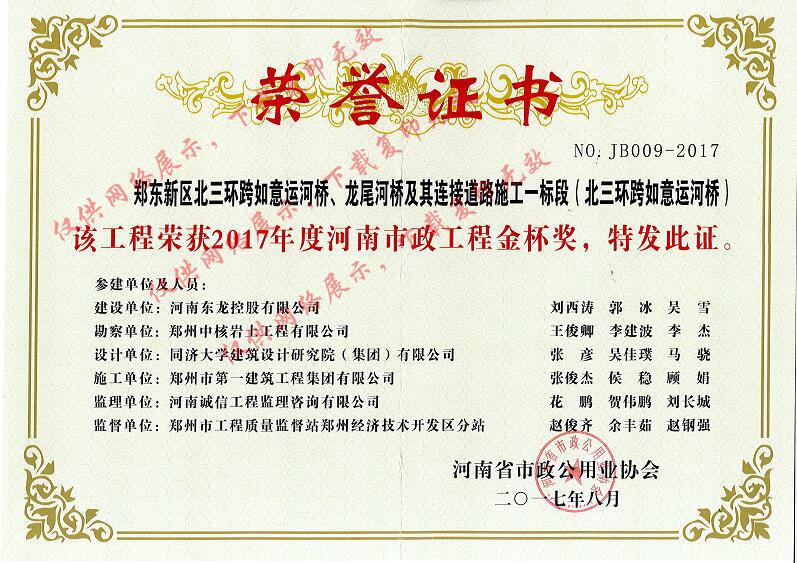 荣誉证书
NO: JB009-2017
郑东新区北三环跨如意运河桥、龙尾河桥及其连接道路施工一标段（北三环跨如意运河桥）
该工程荣获2017年度河南市政工程金杯奖，特发此证。
参建单位及人员：
建设单位：河南东龙控股有限公司 刘西涛 郭冰 吴雪
勘察单位：郑州中核岩土工程有限公司 王俊卿 李建波 李杰
设计单位：同济大学建筑设计研究院（集团）有限公司 张彦 吴佳璞 马骁
施工单位：郑州市第一建筑工程集团有限公司 张俊杰 侯稳 顾娟
监理单位：河南诚信工程监理咨询有限公司 花鹏 贺伟鹏 刘长城
监督单位：郑州市工程质量监督站郑州经济技术开发区分站 赵俊齐 余丰茹 赵钢强
河南省市政公用业协会
二〇一七年八月
河南省市政公用业协会
仅供网络展示，下载复印无效
仅供网络展示，下载复印无效
仅供网络展示，下载复印无效